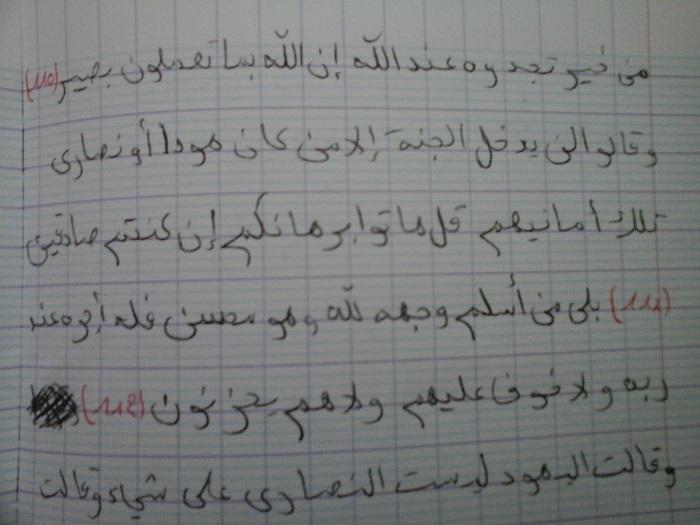 من خير تجدوه عند الله إن الله بما تعملون بصير (١١٠)
وقالوا لن يدخل الجنة إلا من كان هودا أو نصارى
تلك أمانيهم قل هاتوا برهانكم إن كنتم صادقين
(١١١) بلى من أسلم وجهه لله وهو محسن فله أجره عند
ربه ولا خوف عليهم ولا هم يحزنون (١١٢)
وقالت اليهود ليست النصارى على شيء وقالت